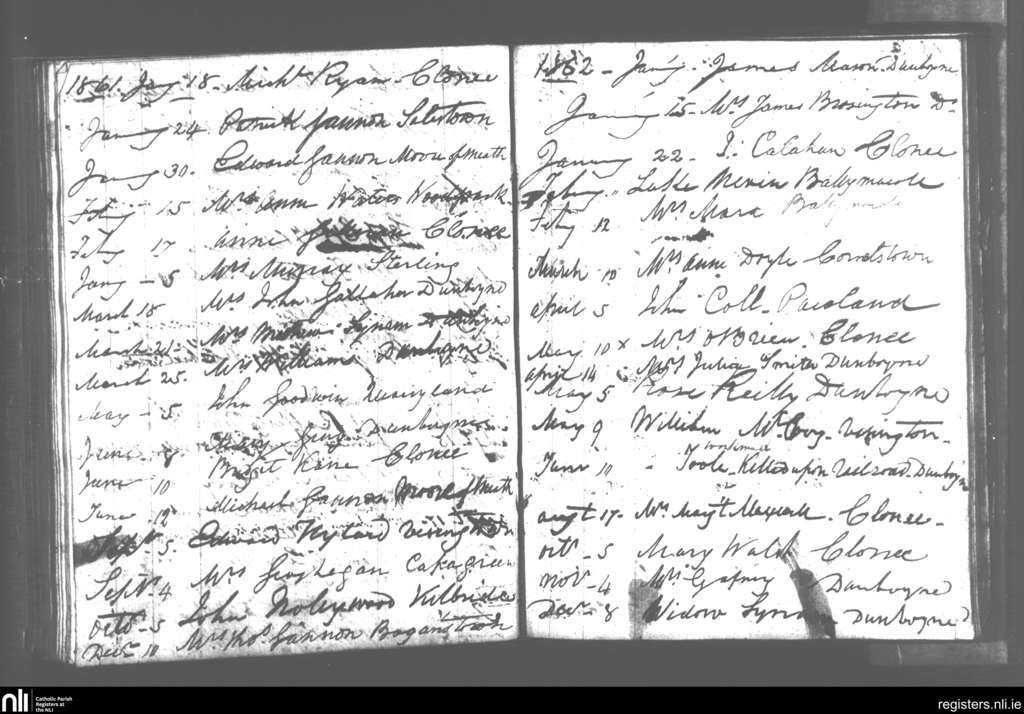 1861. Jany 18. Micht Ryan Clonee
January 24. Patrick Gannon
January 30. Edward Gannon Moore of Meath
Feby 15 Mrs Anne Water Woodpark
Feby 17 Anne Clonee
Jany - 5 Mrs Murray Sterling
March 18 Mrs John Gallaher Dunboyne
March 21. Mrs Lynam Dunboyne
March 25. Mrs Williams Dunboyne
May - 5 John Goodwin Quarryland
June 8 Mary Dunboyne
June 10 Bridget Kane Clonee
June 12 Michael Gannon Moore of Meath
Sept 5. Edward Vesington
Septr. 4 Mrs Geoghegan
Octr - 5 John Holywood Kilbride
Decr 10 Mrs Thos Gannon
2
1862 - Jany. James Mason Dunboyne
January 15 - Mrs James Brosington Do
January 22 - J. Calahan Clonee
Feby " Luke Nevin Ballymacole
Feby 12 Mrs Mara
March 10 Mrs Anne Doyle Cornetstown
April 5 John Coll - Paceland
May 10 x Mrs O'Brien. Clonee
April 14 Mrs Julia Smith Dunboyne
May 5 Rose Reilly Dunboyne
May 9 William McEvoy Vesington
June 10 - Toole, Killed upon railroad Dunboyne
Augt 17 - Mrs Margt Clonee -
Octr - 5 Mary Walsh Clonee
Novr - 4 Mrs Gafney Dunboyne
Decr - 8 Widow Lynam Dunboyne
nli Catholic Parish
Registers at
the NLI
registers.nli.ie